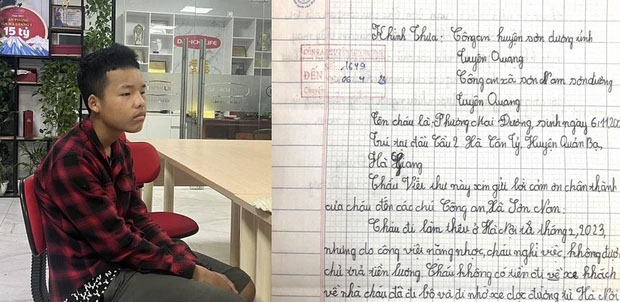 15 tỷ
DAI-ICHI LIFE
ĐẾN
1649
06 4 23
Kính Thưa: Công an huyện sơn dương tỉnh
Tuyên Quang
Công an xã sơn Nam sơn dương
Tuyên Quang
Tên cháu là Phương Mai Dương, sinh ngày 6.11.20
Trú tại đầu Cầu 2 Hà Tân Tỵ, Huyện Quản Bạ,
Hà Giang
Cháu Viết thư này xin gửi lời cảm ơn chân thành
của cháu đến các chú Công an, Hà Sơn Nam.
Cháu đi làm thêu ở Hà Nội từ tháng 2, 2023,
nhưng do công việc nặng nhọc, cháu nghỉ việc, không đươ
chủ trả tiền lương. Cháu không có tiền đi về xe khách
về nhà cháu đã đi bộ và đi nhờ xe dọc đường từ Hà Nội